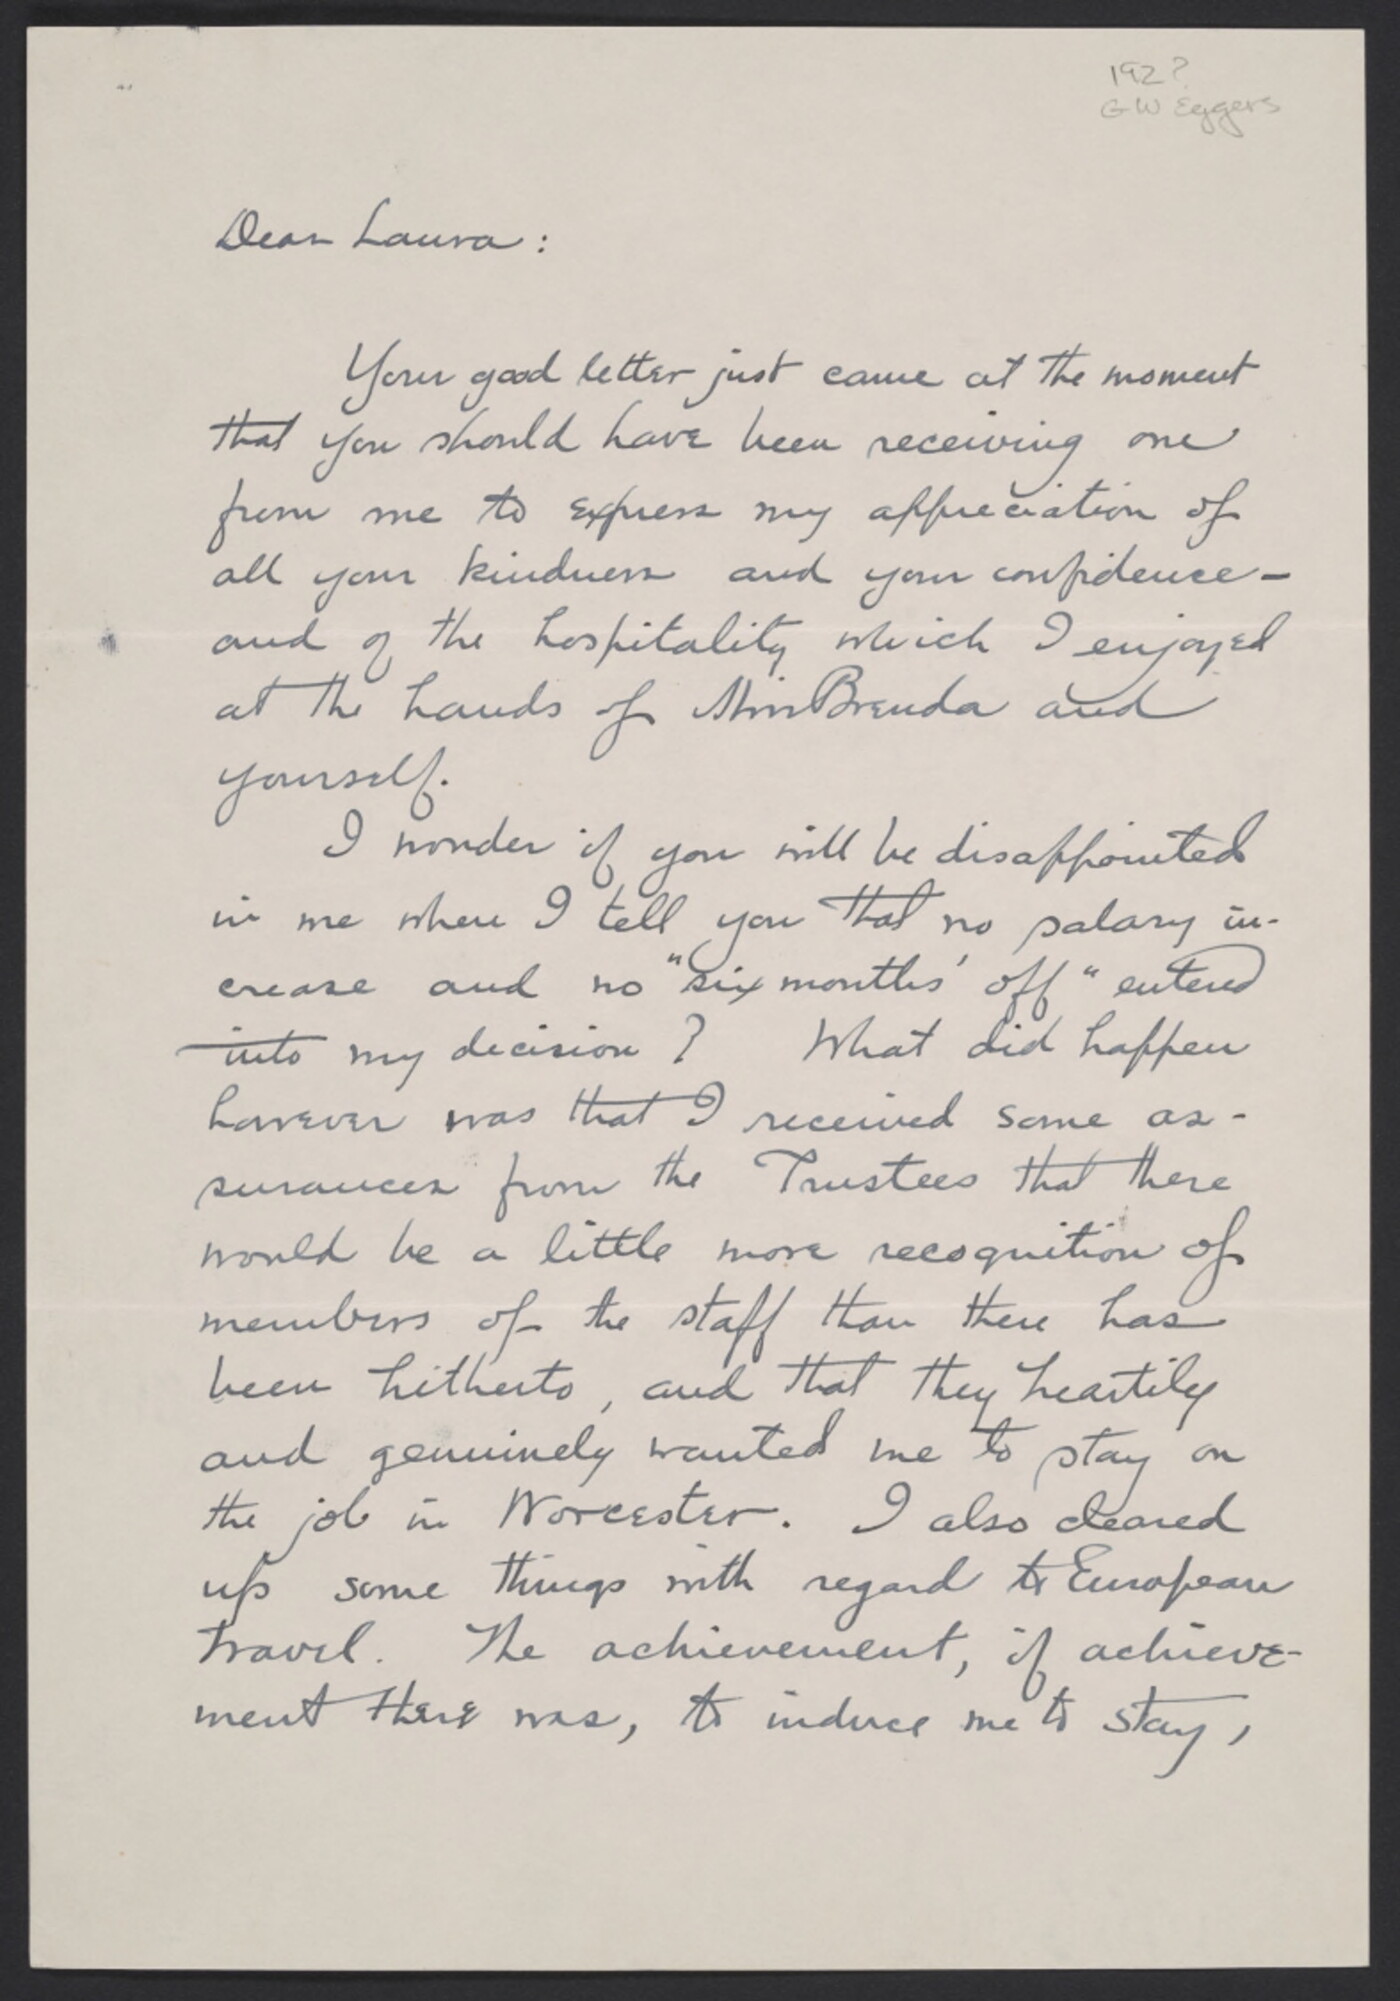 192?
GW Eggers
Dear Laura:
Your good letter just came at the moment
that you should have been receiving one
from me to express my appreciation of
all your kindness and your confidence -
and of the hospitality which I enjoyed
at the hands of Miss Brenda and
yourself.
I wonder if you will be disappointed
in me when I tell you that no salary in-
crease and no "six months' off" entered
into my decision? What did happen
however was that I received some as-
surances from the Trustees that there
would be a little more recognition of
members of the staff than there has
been hitherto, and that they heartily
and genuinely wanted me to stay on
the job in Worcester. I also cleared
up some things with regard to European
travel. The achievement, if achieve-
ment there was, to induce me to stay,